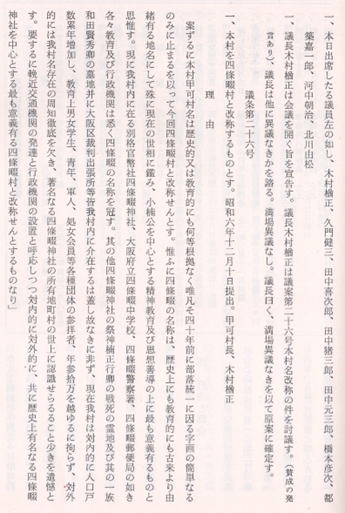 一、本日出席したる議員左の如し、木村楯正、久門健三、田中喜次郎、田中猪三郎、田中元三郎、橋本彦次、都
築嘉一郎、河中朝治、北川由松
一、議長木村楯正は会議を開く旨を宣告す。議長木村楯正は議案第二十六号本村名改称の件を討議す。（賛成の発
言あり）、議長は他に異議なきかを諮る。満場異議なし。議長曰く、満場異議なきを以て原案に確定す。
議案第二十六号
一、本村を四條畷村と改称するものとす。昭和六年十二月十日提出。甲可村長、木村楯正
理由
案ずるに本村甲可村名は歴史的又は教育的にも何等根拠なく唯凡そ四十年前に部落統一に因る字画の簡単なる
のみに止まるを以って今回四條畷村と改称せんとす。惟ふに四條畷の名称は、歴史上にも教育的にも古来より由
緒有る地名にして殊に現在の世相に鑑み、小楠公を中心とする精神教育及び思想善導の上に最も意義有るものと
思惟す。現に我村内に在る別格官幣社四條畷神社、大阪府立四條畷中学校、四條畷警察署、四條畷郵便局の如き
各々教育及び行政機関は悉く四條畷の名称を冠す。其の他四條畷神社の祭神楠正行卿の戦死の霊地及び其の一族
和田賢秀卿の墓地并に大阪区裁判出張所等皆我村内に介在するは蓋し故なきに非ず、現在我村は対内的に人口戸
数累年増加し、教育上男女学生、青年、軍人、処女会員等各種団体の参拝者、年参拾万を越ゆるに拘らず、対外
的には我村名存在の周知徹底を欠き、著名なる四條畷神社の所有地町村の世上に認識せらるること少きを遺憾と
す。要するに輓近交通機関の発達と行政機関の設置と呼応しつつ対内的に対外的に、共に歴史上有名なる四條畷
神社を中心とする最も意義有る四條畷村と改称せんとするものなり」